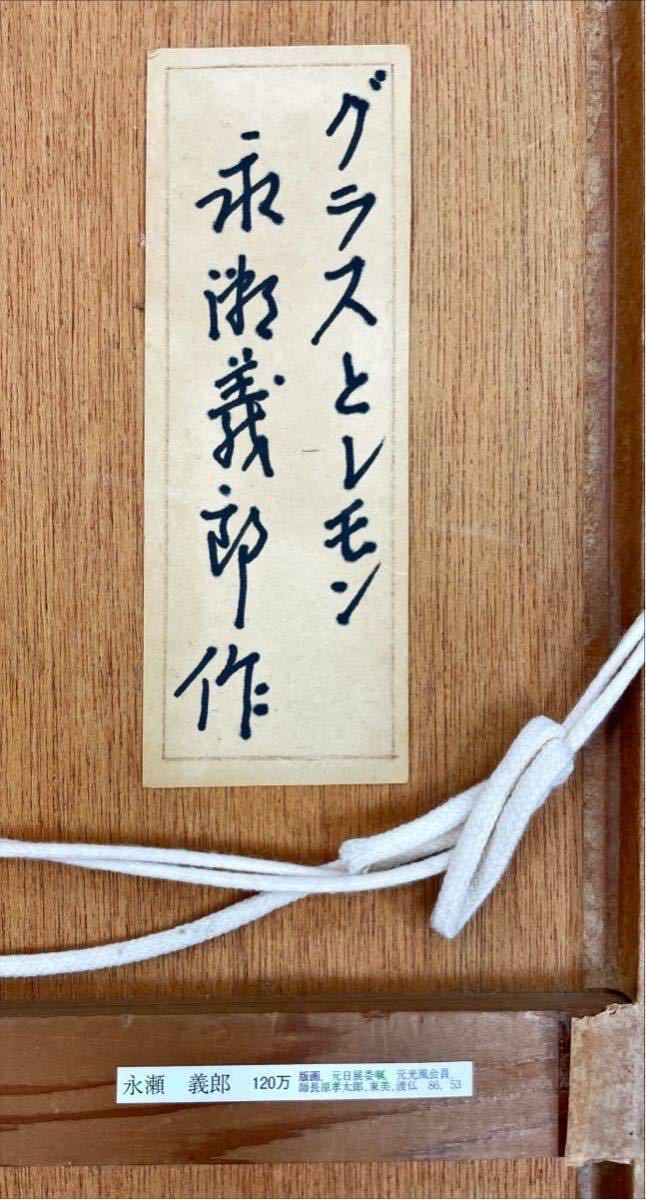 グラスとレモン
永瀬義郎作
永瀬 義郎 120万 版画、元日展委嘱、元光風会員、
師長原孝太郎、東美、渡仏 86、53